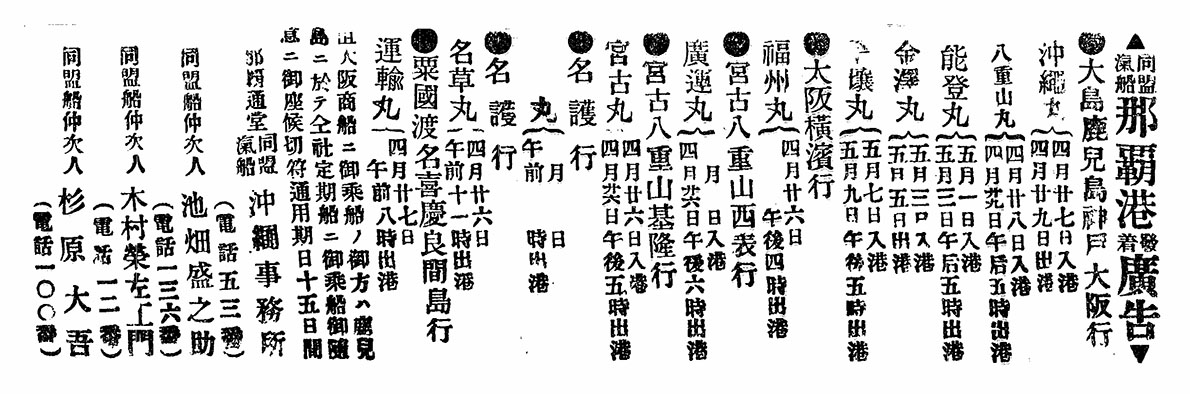 ▲同盟汽船那覇港發着廣告▼
●大島鹿兒島神戸大阪行
沖繩丸{四月廿七日入港 四月廿九日出港
八重山丸{四月廿八日入港 四月廿九日午后五時出港
能登丸{五月一日入港 五月三日午后五時出港
金澤丸{五月三日入港 五月五日出港
壤丸{五月七日入港 五月九日午後五時出港
●太阪橫濱行
福州丸{四月廿六日 午後四時出港
●宮古八重山西表行
廣運丸{月 日入港 四月廿六日午後六時出港
●宮古八重山基隆行
宮古丸{四月廿六日入港 四月廿六日午後五時出港
●名護行
丸{月 日 午前 時出港
●名護行
名草丸{四月廿六日 午前十一時出港
●粟國渡名喜慶良間島行
運輸丸{四月廿七日 午前八時出港
但大阪商船ニ御乘船ノ御方ハ鹿兒
島ニ於テ仝社定期船ニ御乘船御隨
意ニ御座候切符通用期日十五日間
那覇通堂 同盟汽船 沖繩事務所
(電話五三番)
同盟船仲次人 池畑盛之助
(電話一三六番)
同盟船仲次人 木村榮左工門
(電話一二番)
同盟船仲次人 杉原大吾
(電話一〇〇番)